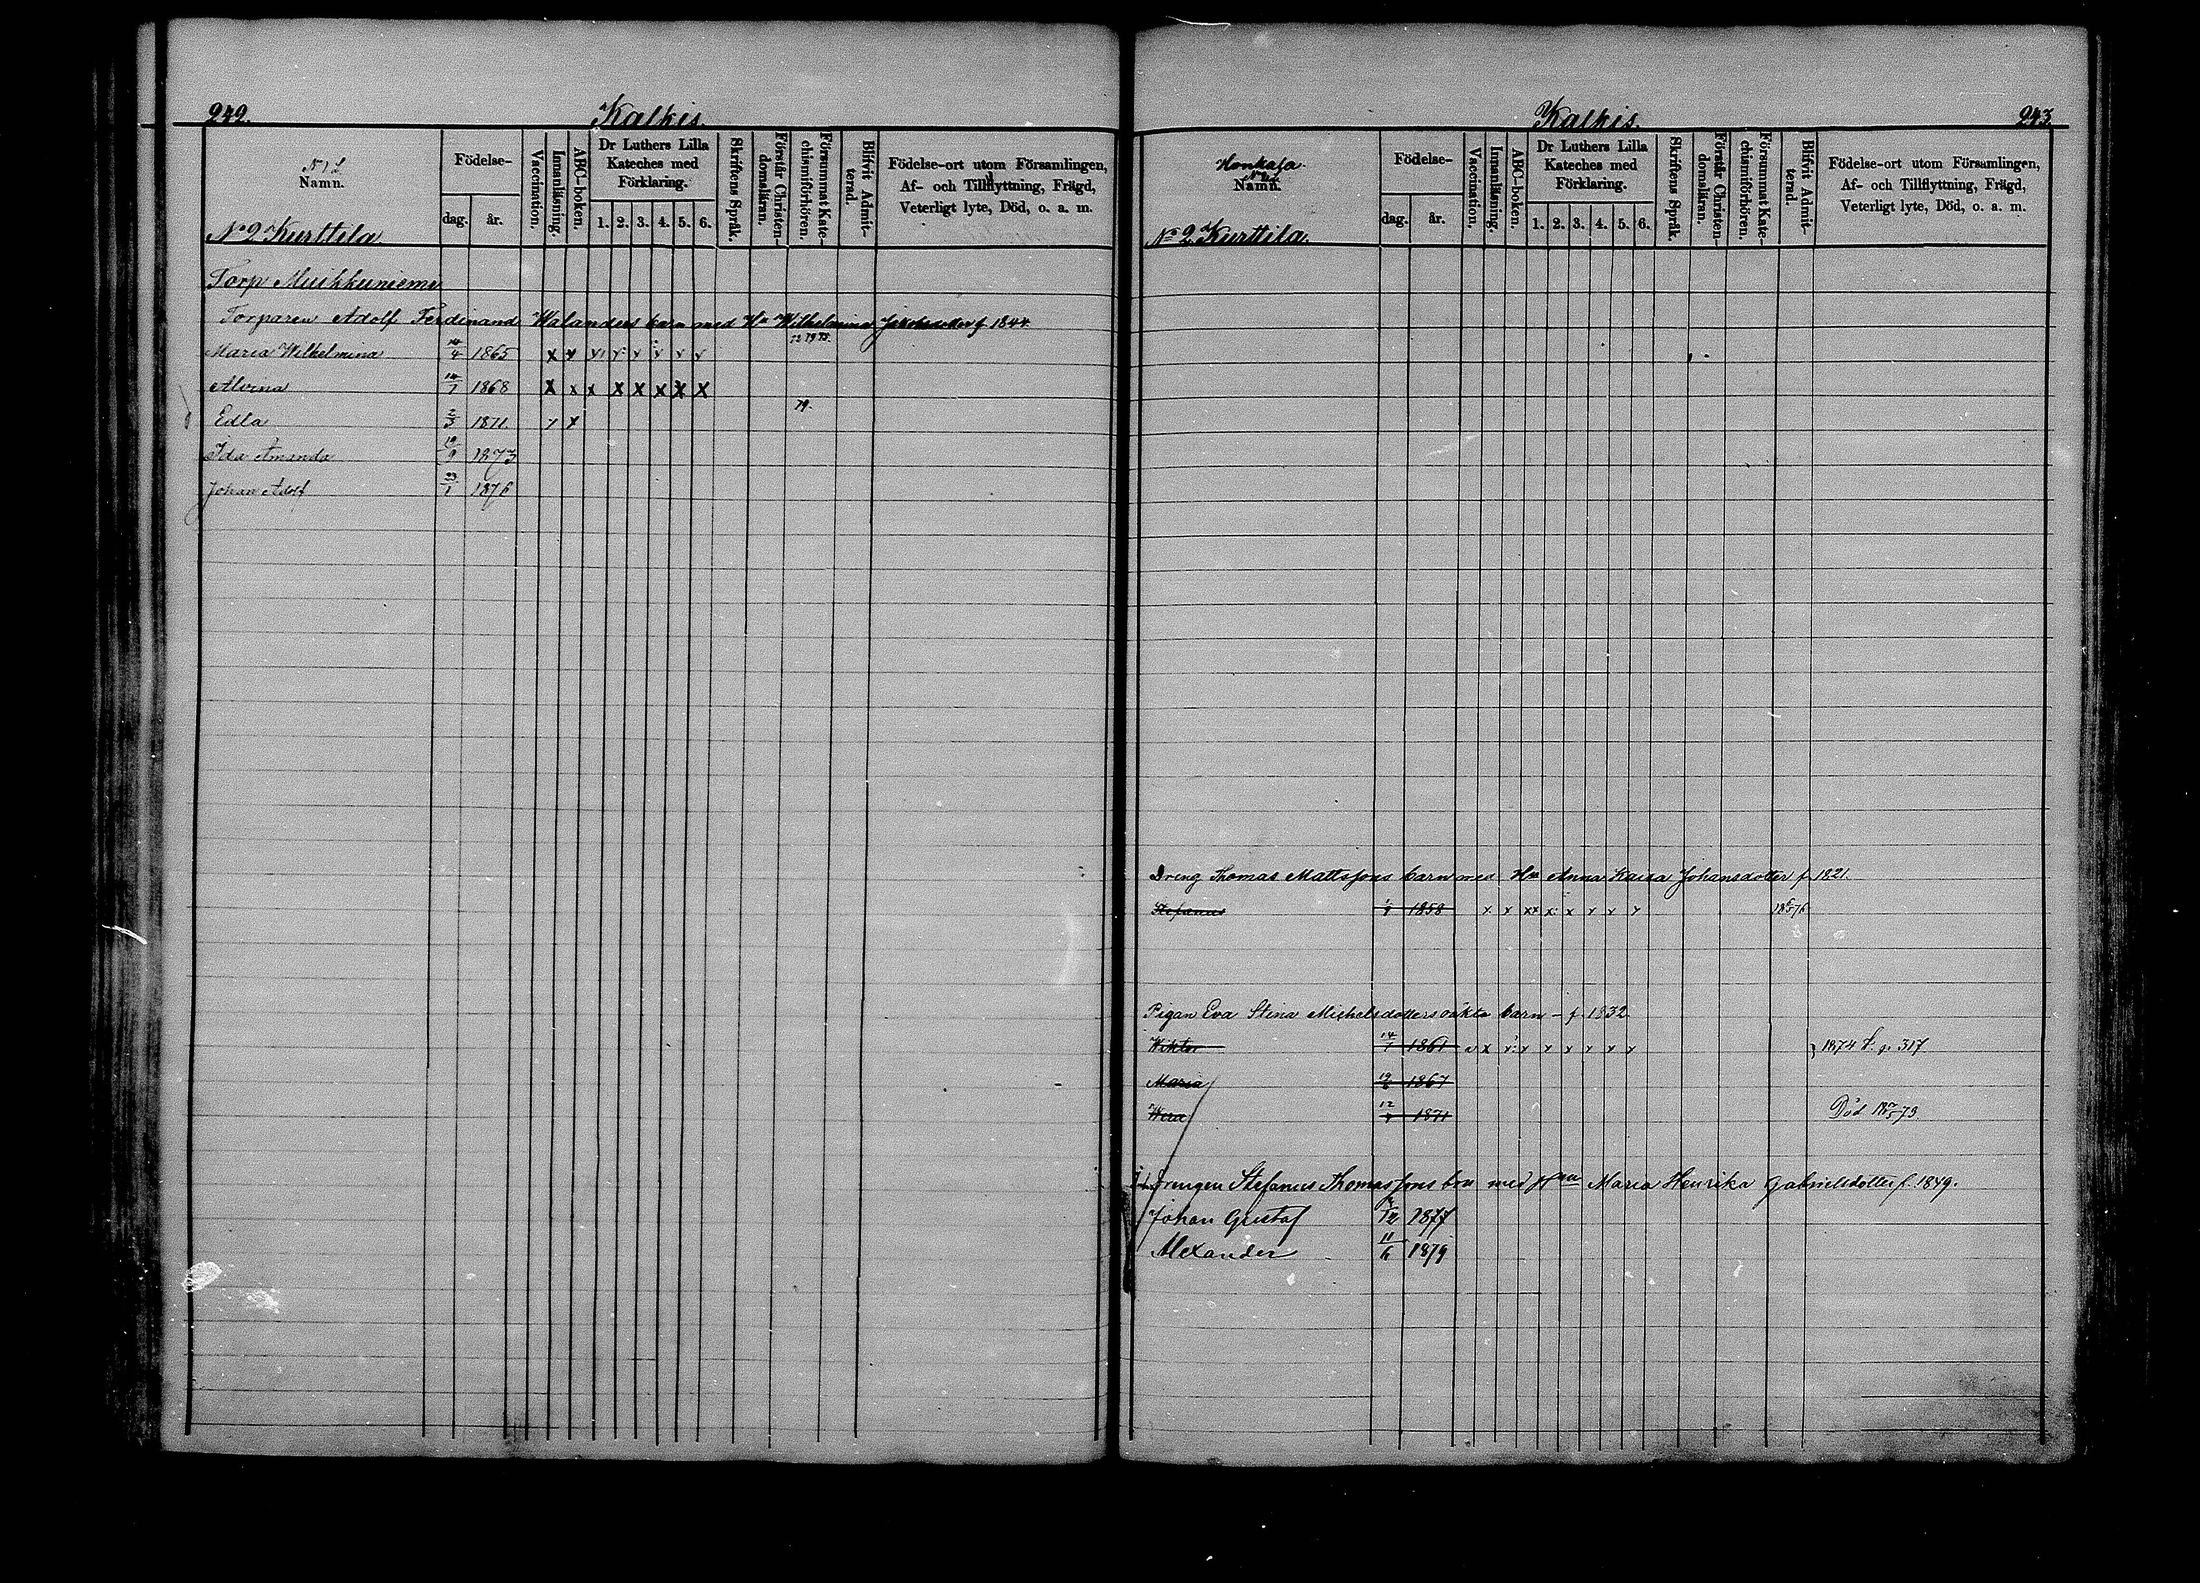 242.
Kalkis.
Namn.
Födelse-
dag. år.
Vaccination.
Innanläsning.
ABC-boken.
Dr Luthers Lilla
Kateches med
Förklaring.
1. 2. 3. 4. 5. 6.
Skriftens Språk.
Förstår Christen-
domsläran.
Försummat Kate-
chismiförhören.
Blifvit Admit-
terad.
Födelse-ort utom Församlingen,
Af- och Tillflyttning, Frägd,
Veterligt lyte, Död, o. a. m.
No 2 Kurttila
Torp Muikkuniemi
Torparen Adolf Ferdinand Walanders barn med Hu Wilhelmina Jakobsdotter f 1844
Maria Wilhelmina 10/4 1865 x x x x x x x x
Alvina 14/1 1868 x x x x x x x x
79.
Edla 2/3 1871 x x
Ida Amanda 19/9 1873
Johan Adolf 23/1 1876
Kalkis.
243.
Honkasa
Namn.
Födelse-
dag. år.
Vaccination.
Innanläsning.
ABC-boken.
Dr Luthers Lilla
Kateches med
Förklaring.
1. 2. 3. 4. 5. 6.
Skriftens Språk.
Förstår Christen-
domsläran.
Försummat Kate-
chismiförhören.
Blifvit Admit-
terad.
Födelse-ort utom Församlingen,
Af- och Tillflyttning, Frägd,
Veterligt lyte, Död, o. a. m.
No 2 Kurttila.
Dreng Thomas Mattssons barn med Hu Anna Kaisa Johansdotter f 1821.
Stefanus 1858 x x xx x x x x x
Pigan Eva Stina Michelsdotters oäkta barn - f. 1832
Wiktor 14/1 1861 x x x x x x x x 1874 t. p. 317
Maria 1867
Wera 1871 Död
Drengen Stefanus Thomassons barn med Hun Maria Henrika Gabrielsdotter f. 1849.
Johan Gustaf 7/12 1877
Alexander 11/6 1879